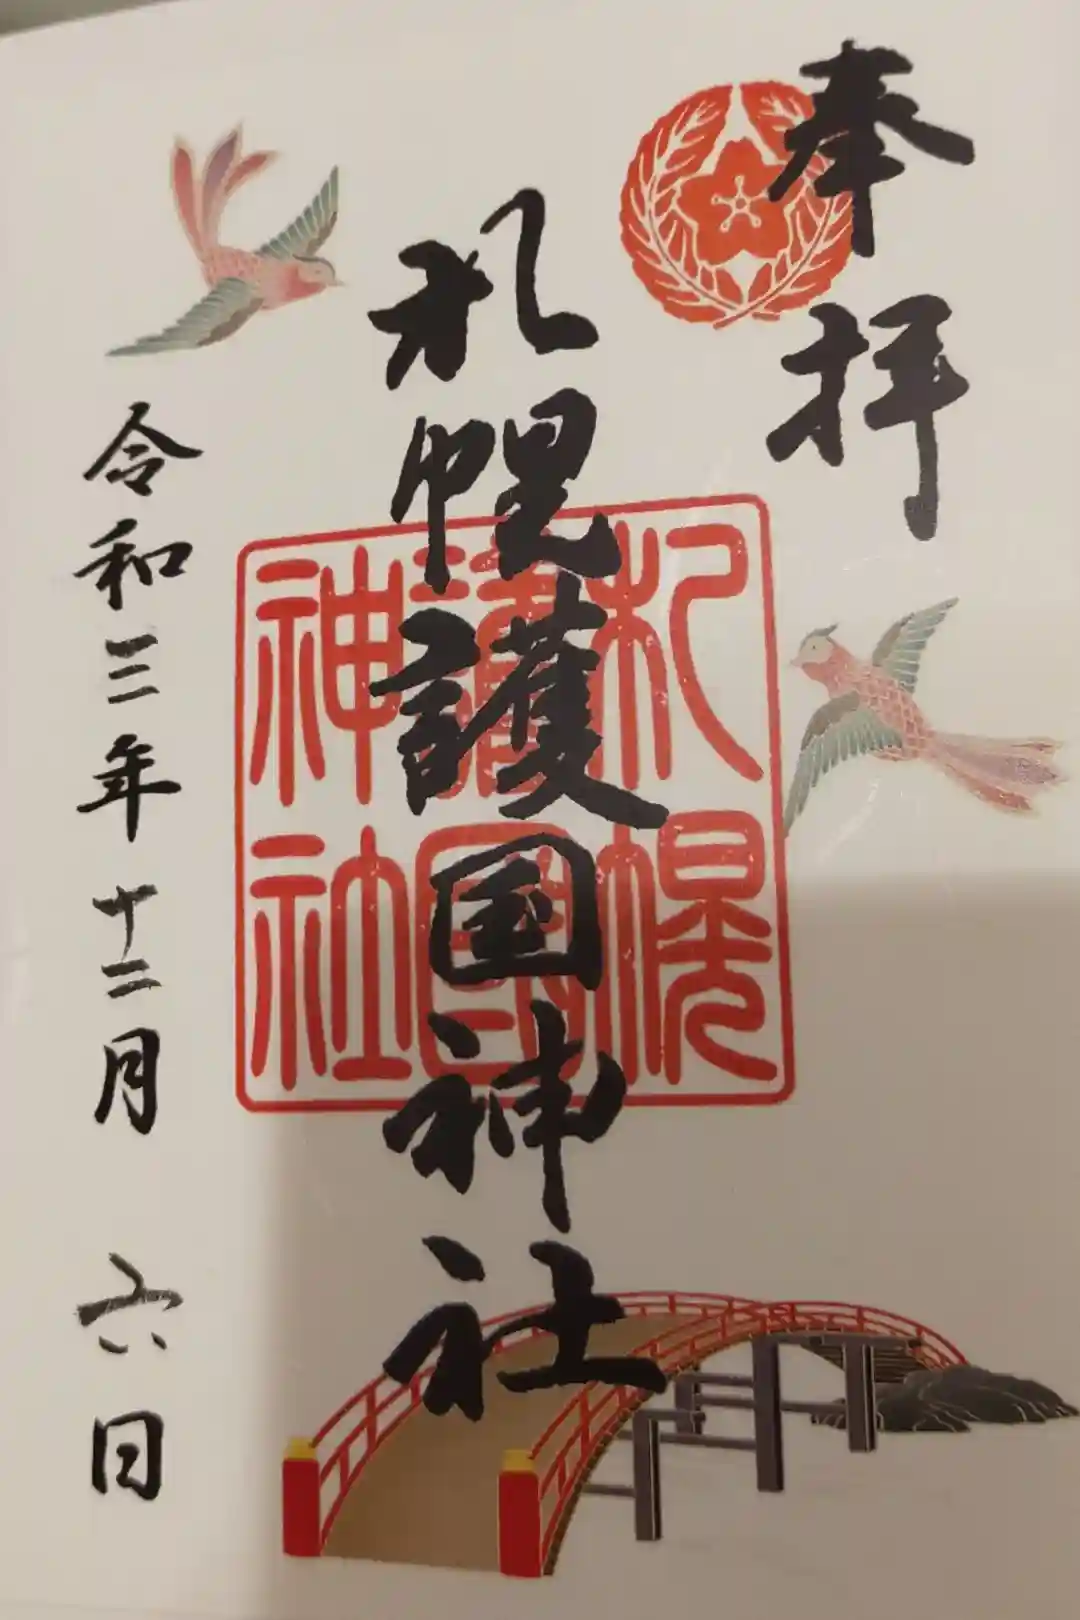 奉拝
札幌護国神社
札幌
護國
神社
令和三年十二月六日